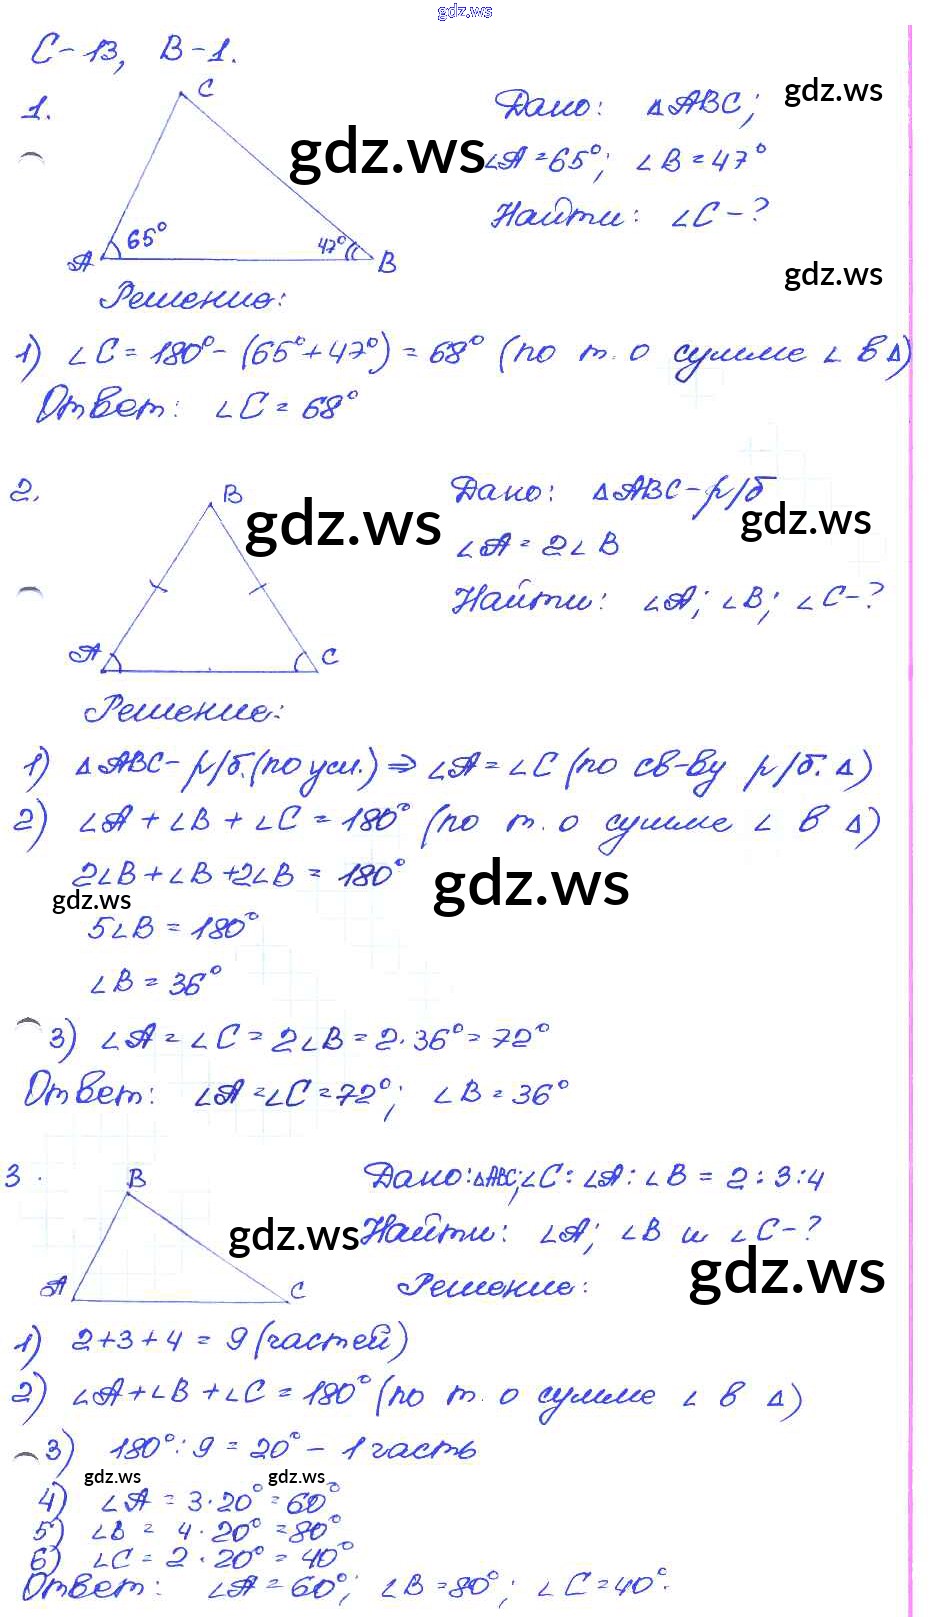 gdz.ws
С-13, В-1.
1.
C
A
65°
47°
B
gdz.ws
Дано: △ABC; gdz.ws
∠A=65°; ∠B=47°
Найти: ∠C-?
gdz.ws
Решение:
1) ∠C = 180°-(65°+47°) = 68° (по т. о сумме ∠ в △)
Ответ: ∠C = 68°
2.
B
A
C
gdz.ws
Дано: △ABC-р/б
gdz.ws
∠A = 2∠B
Найти: ∠A; ∠B; ∠C-?
Решение:
1) △ABC- р/б.(по усл.) ⇒ ∠A=∠C (по св-ву р/б. △)
2) ∠A+∠B+∠C = 180° (по т. о сумме ∠ в △)
2∠B+∠B+2∠B = 180°
gdz.ws
gdz.ws
5∠B = 180°
∠B = 36°
3) ∠A = ∠C = 2∠B = 2·36° = 72°
Ответ: ∠A=∠C=72°; ∠B = 36°
3.
B
A
C
gdz.ws
Дано: △ABC; ∠C : ∠A : ∠B = 2 : 3 : 4
Найти: ∠A; ∠B и ∠C-?
gdz.ws
Решение:
1) 2+3+4 = 9 (частей)
2) ∠A+∠B+∠C = 180° (по т. о сумме ∠ в △)
3) 180° : 9 = 20° - 1 часть
gdz.ws gdz.ws
4) ∠A = 3·20° = 60°
5) ∠B = 4·20° = 80°
6) ∠C = 2·20° = 40°
Ответ: ∠A = 60°; ∠B = 80°; ∠C = 40°.